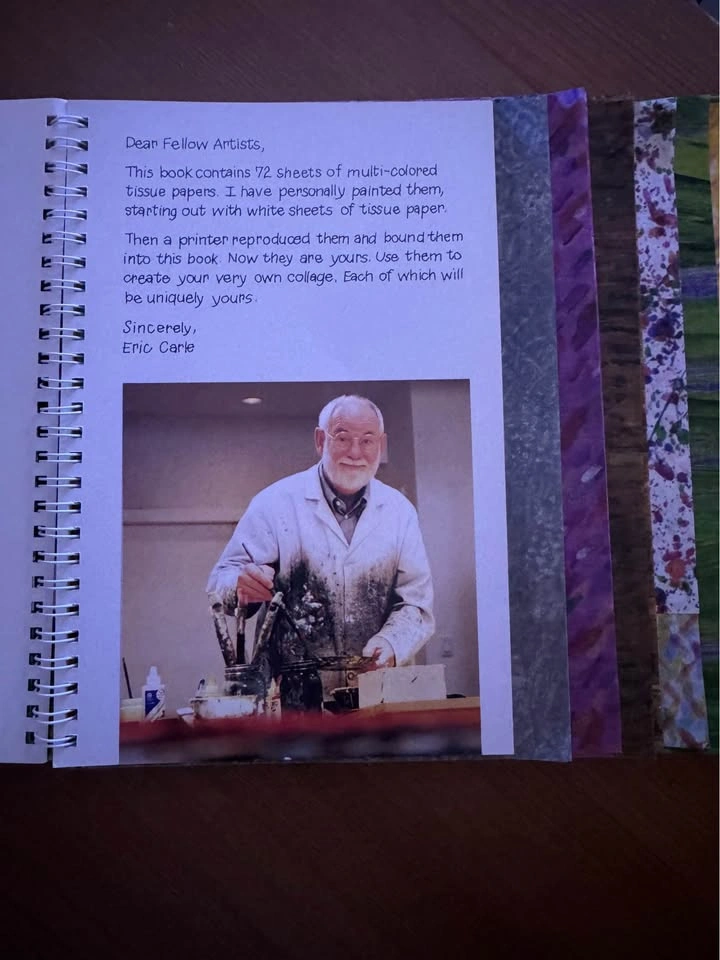 Dear Fellow Artists,
This book contains 72 sheets of multi-colored
tissue papers. I have personally painted them,
starting out with white sheets of tissue paper.
Then a printer reproduced them and bound them
into this book. Now they are yours. Use them to
create your very own collage. Each of which will
be uniquely yours.
Sincerely,
Eric Carle